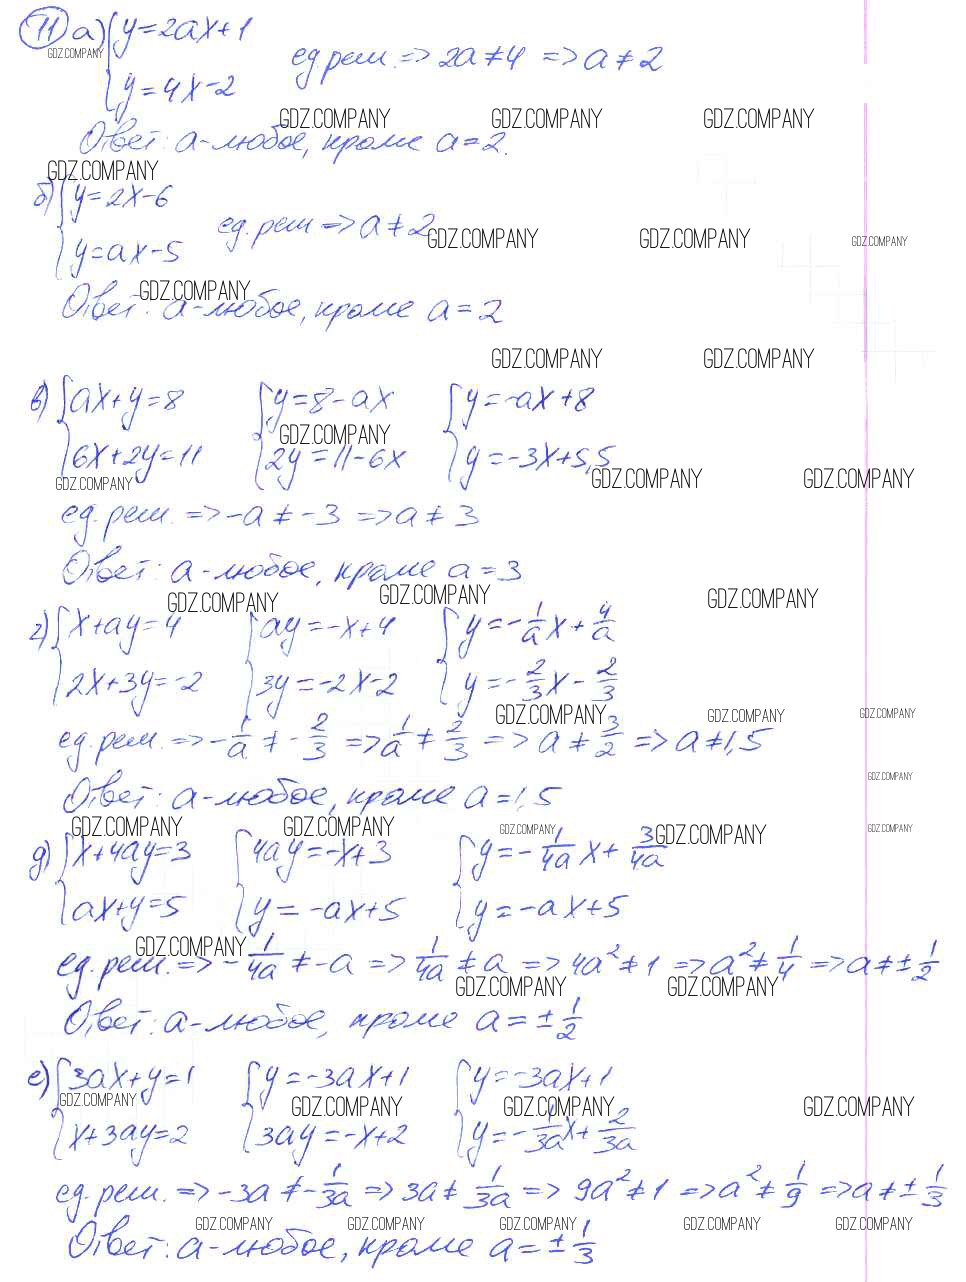 11 а) { y=2ax+1
GDZ.COMPANY
ед реш. => 2a≠4 => a≠2
y=4x-2
GDZ.COMPANY GDZ.COMPANY GDZ.COMPANY
Ответ: а-любое, кроме a=2.
GDZ.COMPANY
б) { y=2x-6
ед. реш => a≠2
GDZ.COMPANY GDZ.COMPANY GDZ.COMPANY
y=ax-5
GDZ.COMPANY
Ответ: а-любое, кроме a=2
GDZ.COMPANY GDZ.COMPANY
в) { ax+y=8 { y=8-ax { y=-ax+8
GDZ.COMPANY
6x+2y=11 2y=11-6x y=-3x+5,5
GDZ.COMPANY GDZ.COMPANY GDZ.COMPANY
ед. реш. => -a≠-3 => a≠3
Ответ: а-любое, кроме a=3
GDZ.COMPANY GDZ.COMPANY GDZ.COMPANY
г) { x+ay=4 { ay=-x+4 { y=-1/a x+4/a
2x+3y=-2 3y=-2x-2 y=-2/3 x-2/3
GDZ.COMPANY GDZ.COMPANY GDZ.COMPANY
ед. реш. => -1/a≠-2/3 => 1/a≠2/3 => a≠3/2 => a≠1,5
GDZ.COMPANY
Ответ: а-любое, кроме a=1,5
GDZ.COMPANY GDZ.COMPANY GDZ.COMPANY GDZ.COMPANY GDZ.COMPANY
д) { x+4ay=3 { 4ay=-x+3 { y=-1/4a x+3/4a
ax+y=5 y=-ax+5 y=-ax+5
GDZ.COMPANY
ед. реш. => -1/4a≠-a => 1/4a≠a => 4a²≠1 => a²≠1/4 => a≠±1/2
GDZ.COMPANY GDZ.COMPANY
Ответ: а-любое, кроме a=±1/2
е) { 3ax+y=1 { y=-3ax+1 { y=-3ax+1
GDZ.COMPANY GDZ.COMPANY GDZ.COMPANY GDZ.COMPANY
x+3ay=2 3ay=-x+2 y=-1/3a x+2/3a
ед. реш. => -3a≠-1/3a => 3a≠1/3a => 9a²≠1 => a²≠1/9 => a≠±1/3
GDZ.COMPANY GDZ.COMPANY GDZ.COMPANY GDZ.COMPANY GDZ.COMPANY
Ответ: а-любое, кроме a=±1/3